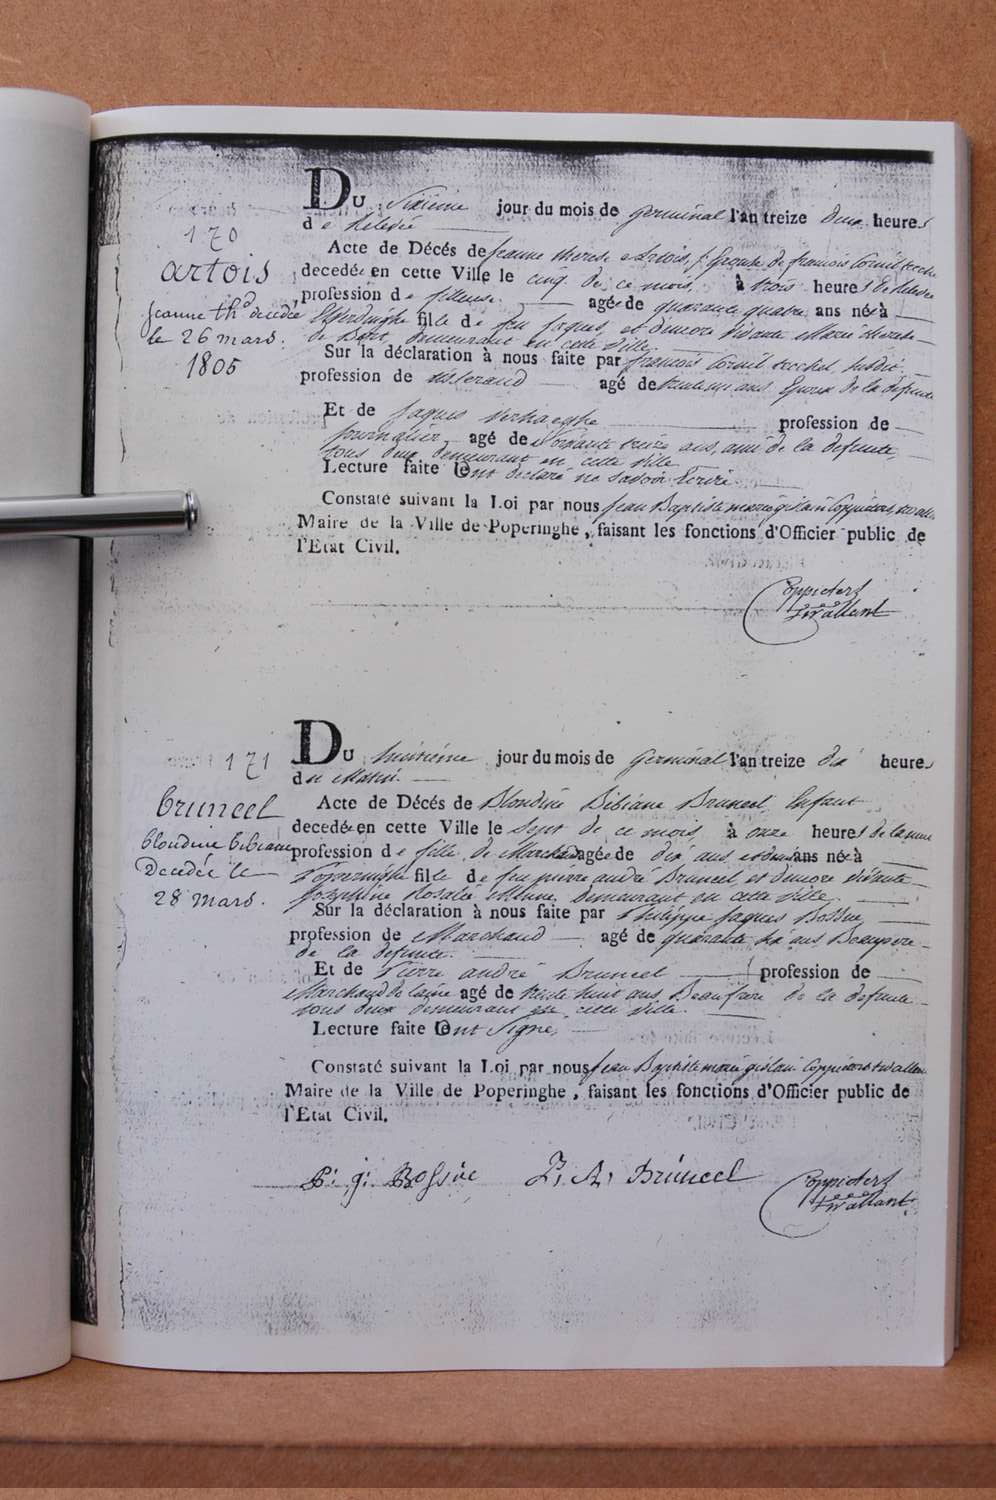 170
artois
Jeanne th. decedée
le 26 mars.
1805
Du Sixieme jour du mois de Germinal l'an treize deux heures
de Relevée
Acte de Décés de Jeanne therese Artois, Epouse de francois Cornil
decedée en cette Ville le cinq de ce mois à trois heures de Relevée
profession de fileuse agée de quarante quatre ans née à
Elverdinghe fille de feu Jaques et d'encore vivante Marie therese
demeurant en cette ville.
Sur la déclaration à nous faite par francois Cornil susdit
profession de tisserand agé de trente un ans Epoux de la defunte
Et de Jaques Verhaeghe profession de
journalier agé de soixante treize ans, ami de la defunte,
tous deux demeurant en cette ville
Lecture faite ont declaré ne savoir Ecrire
Constaté suivant la Loi par nous Jean Baptiste marie gislain Coppieters
Maire de la Ville de Poperinghe, faisant les fonctions d'Officier public de
l'Etat Civil.
Coppieters
tWallant
171
bruneel
blondine bibiane
Decedée le
28 mars.
Du huitieme jour du mois de Germinal l'an treize dix heures
du Matin
Acte de Décés de Blondine Bibiane Bruneel Enfant
decedée en cette Ville le sept de ce mois à onze heures de la nuit
profession de fille de Marchand agée de dix ans et demi ans née à
Poperinghe fille de feu pierre andré Bruneel et d'encore vivante
Josephine Rosalie demeurant en cette ville.
Sur la déclaration à nous faite par Philippe Jaques Bossue,
profession de Marchand agé de quarante six ans Beaupere
de la defunte.
Et de Pierre andré Bruneel profession de
Marchand de laine agé de trente huit ans, Beaufrere de la defunte
tous deux demeurant en cette ville.
Lecture faite ont Signé,
Constaté suivant la Loi par nous Jean Baptiste marie gislain Coppieters
Maire de la Ville de Poperinghe, faisant les fonctions d'Officier public de
l'Etat Civil.
P: j: Bossúe P. A. Brúneel Coppieters
tWallant